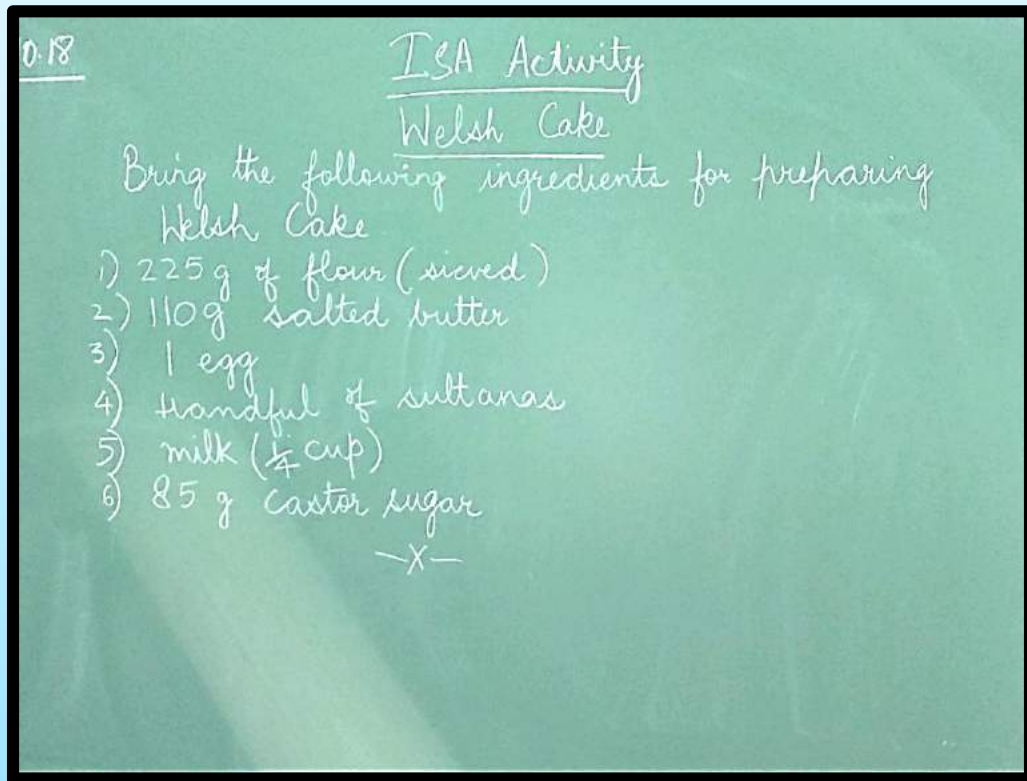 0.18
ISA Activity
Welsh Cake
Bring the following ingredients for preparing
Welsh Cake
1) 225g of flour (sieved)
2) 110g salted butter
3) 1 egg
4) Handful of sultanas
5) milk (1/4 cup)
6) 85 g castor sugar
—X—